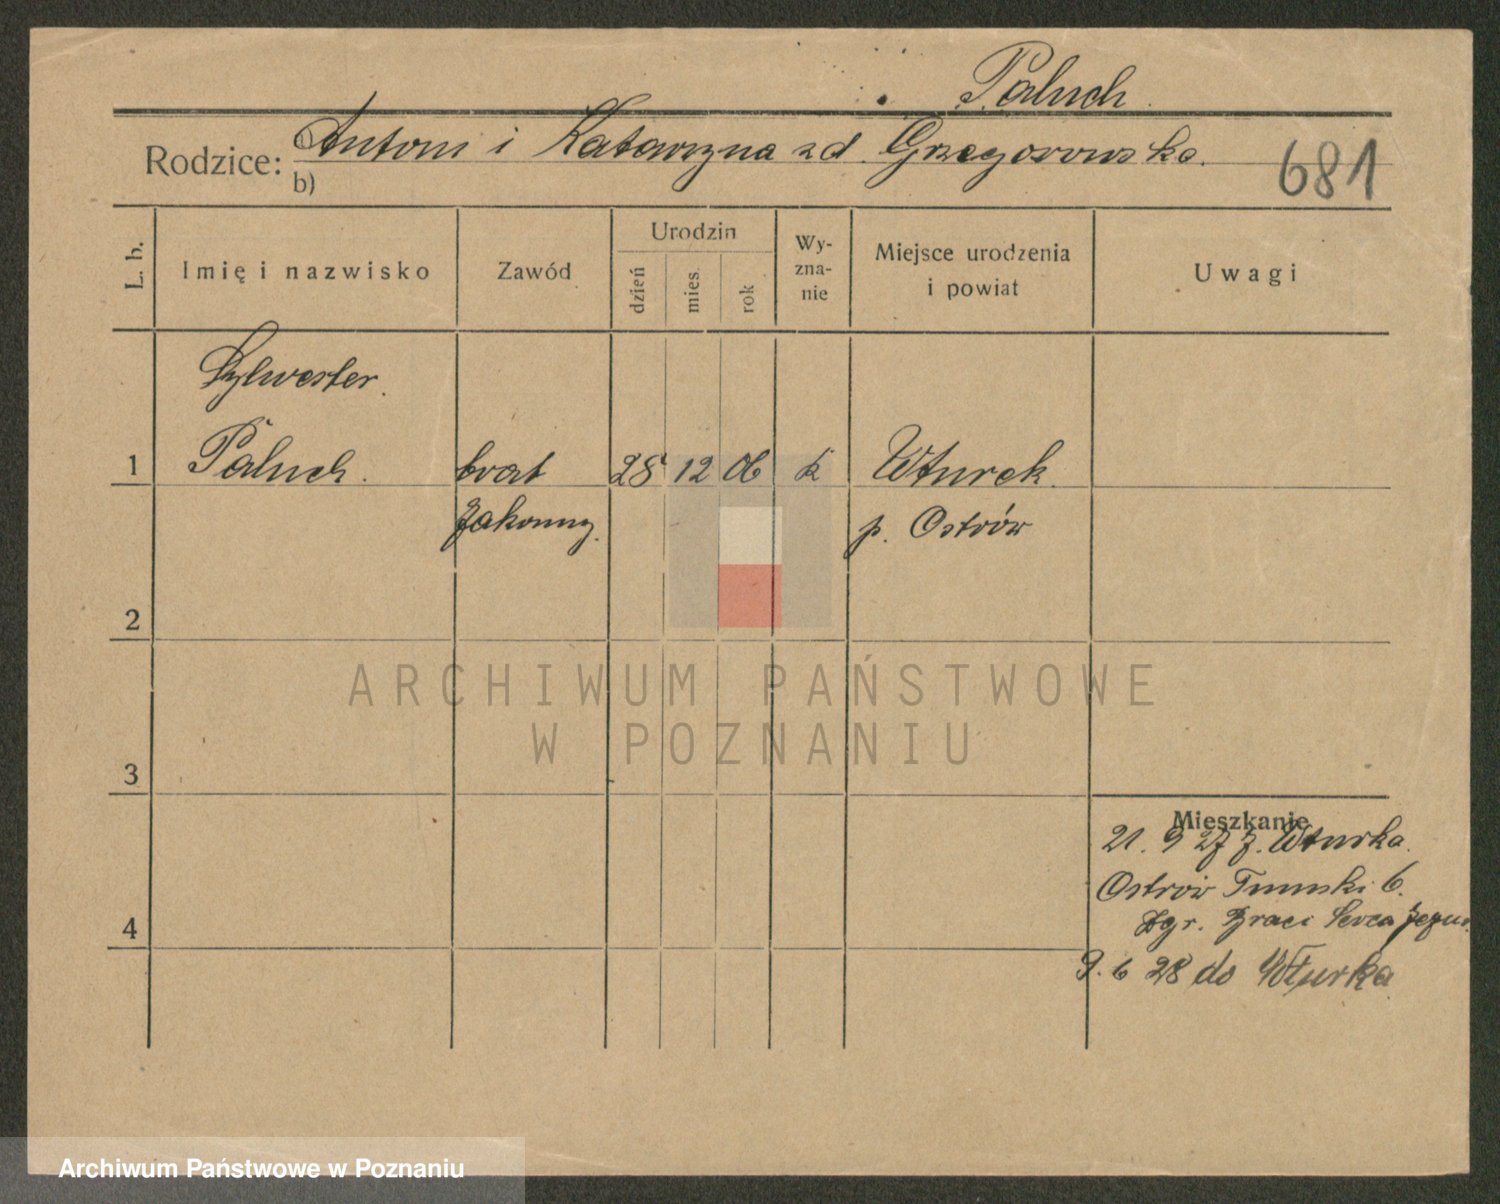 Paluch
Rodzice: Antoni i Katarzyna zd. Grzegorowska.
b)
681
L. b.
Imię i nazwisko
Zawód
Urodzin
dzień
mies.
rok
Wy-
zna-
nie
Miejsce urodzenia
i powiat
Uwagi
Sylwester.
1 Paluch. brat 28 12 06 k Wturek.
zakonny. p. Ostrów
2
3
4
Mieszkanie
21. 9 27 z. Wturka.
Ostrów Tumski 6.
Zgr. Braci Serca Jezus.
9. 6 28 do Wturka
ARCHIWUM PAŃSTWOWE
W POZNANIU
Archiwum Państwowe w Poznaniu